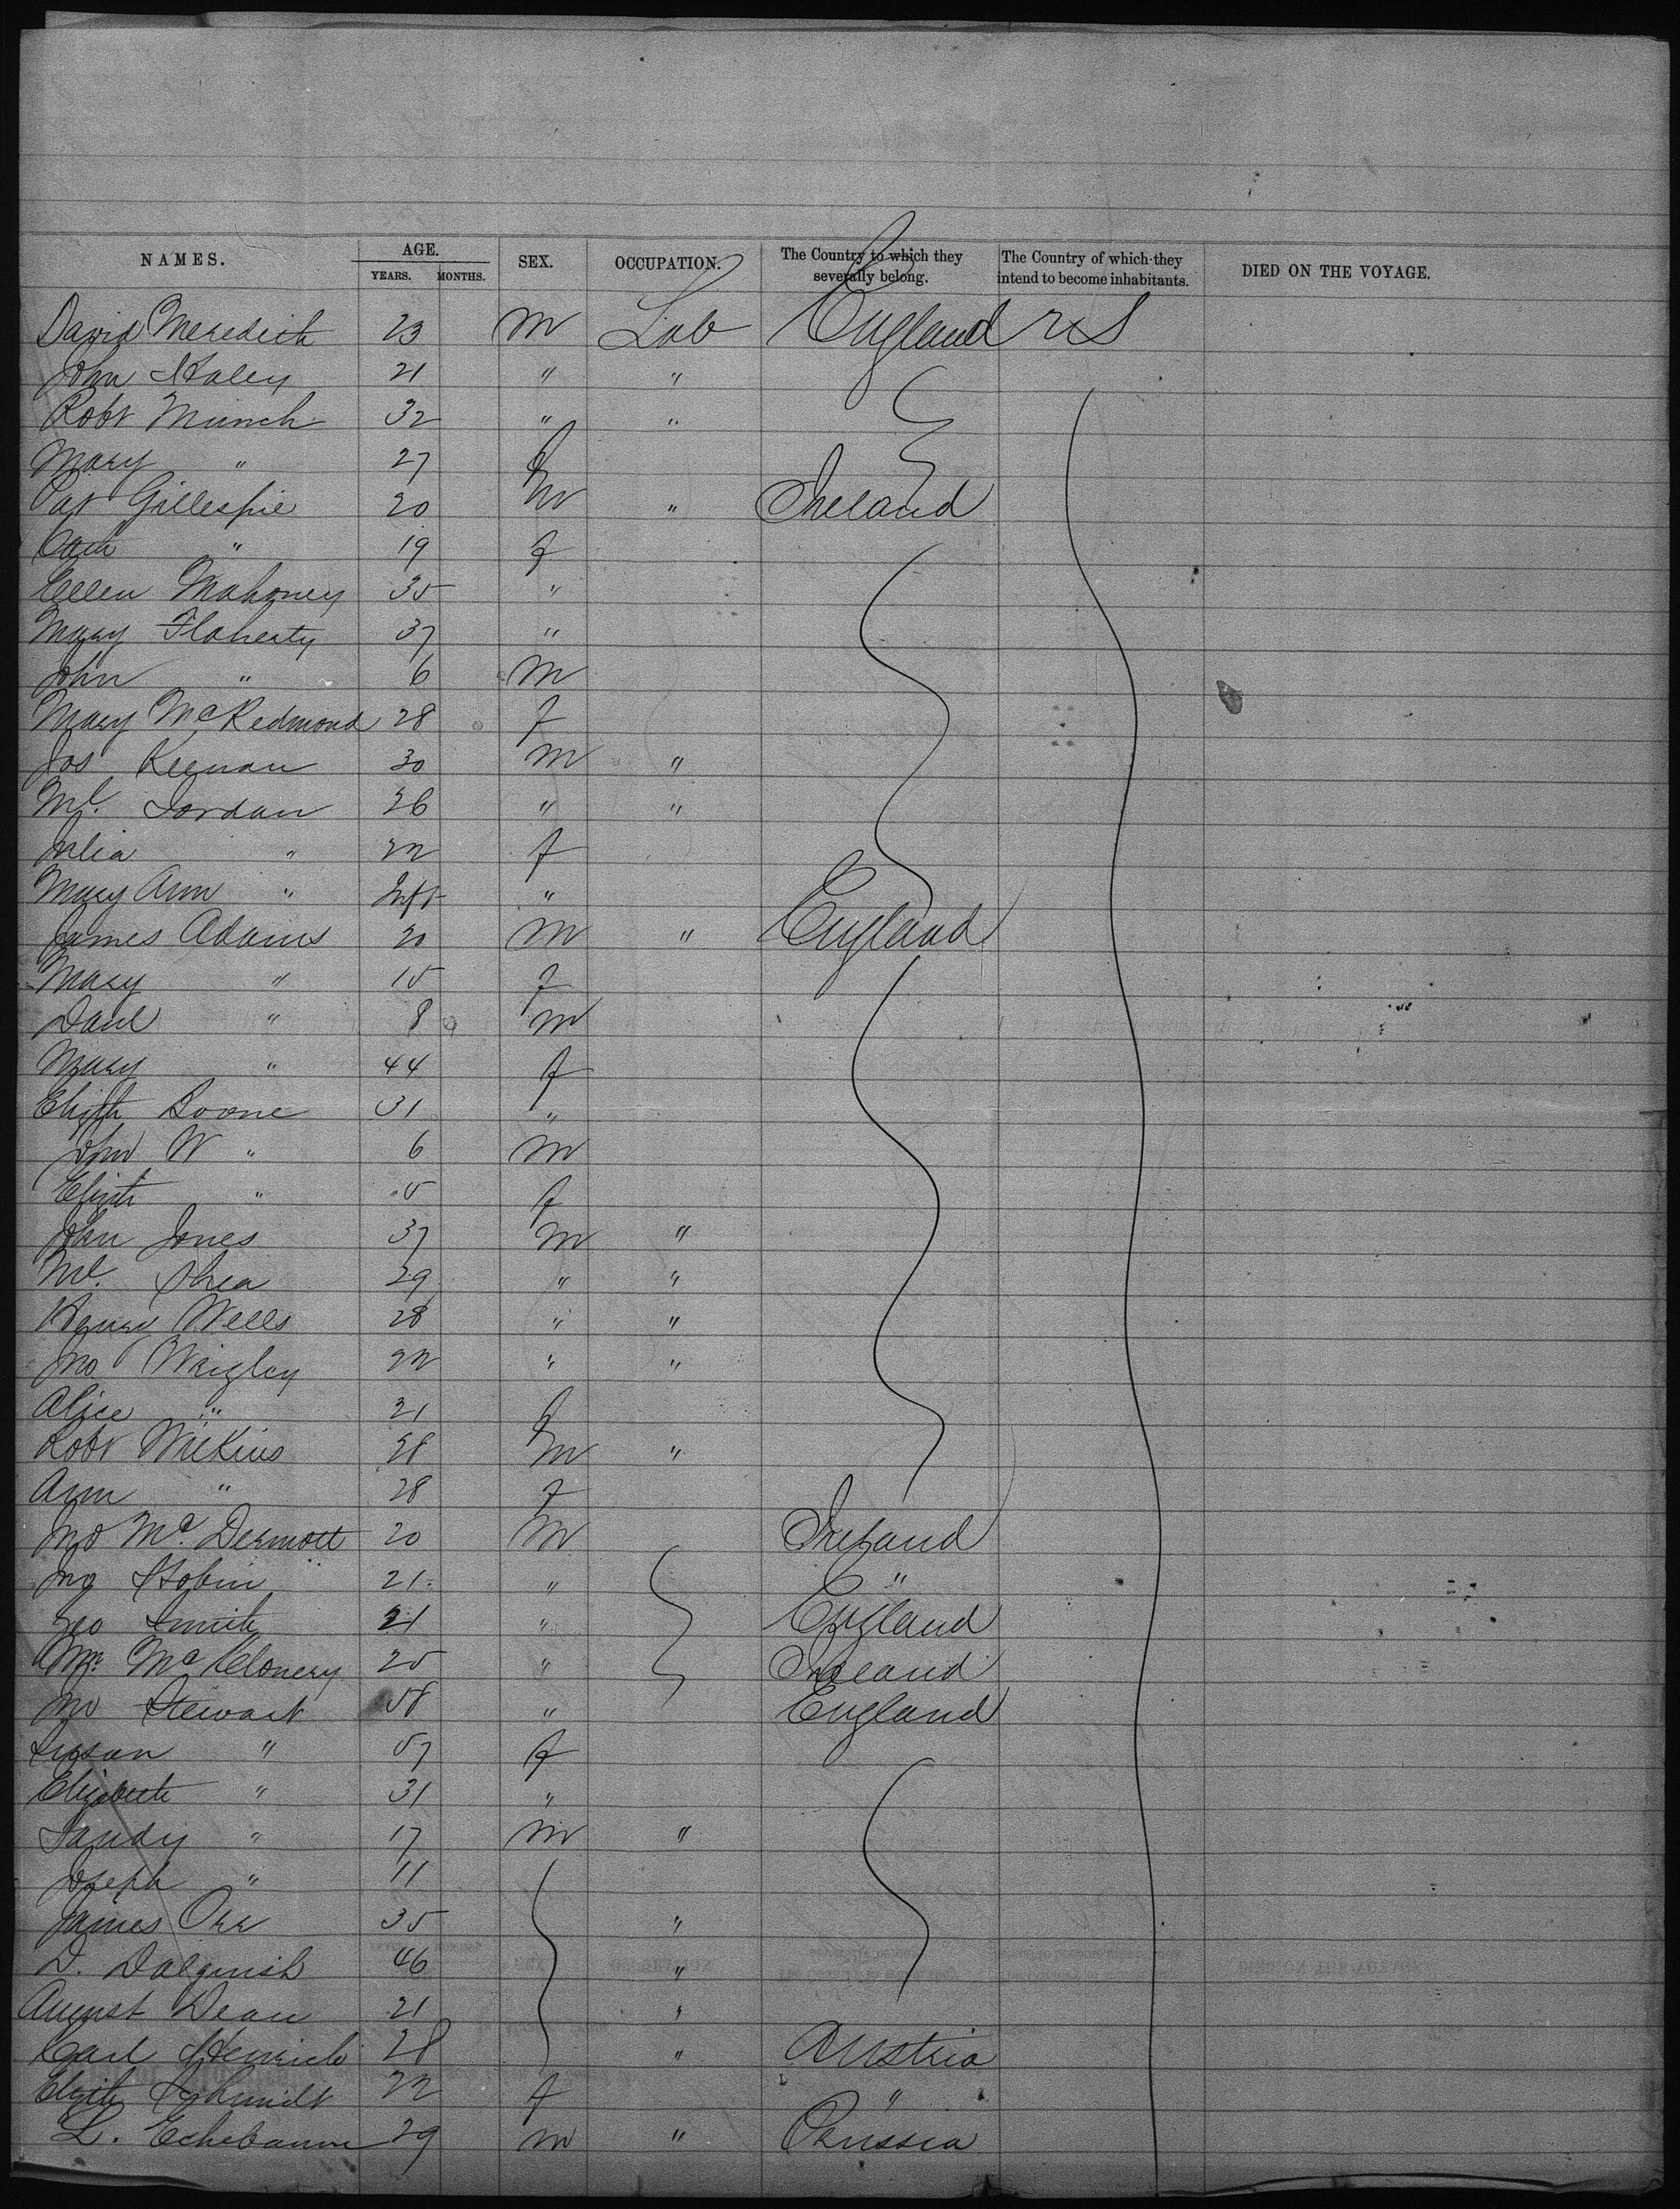 NAMES. AGE. YEARS. MONTHS. SEX. OCCUPATION. The Country to which they severally belong. The Country of which they intend to become inhabitants. DIED ON THE VOYAGE.
David Meredith 23 M Lab England U S
John Haley 21 " "
Robt Munch 32 " "
Mary " 27 f
Pat Gillespie 20 M " Ireland
Cath " 19 f
Ellen Mahoney 35 "
Mary Flaherty 37 "
John " 6 M
Mary McRedmond 28 f
Jos Keenan 30 M "
Ml. Jordan 26 " "
Julia " 22 f
Mary Ann " Inft "
James Adams 20 M " England
Mary " 15 f
Danl " 8 M
Mary " 44 f
Elizth Boone 31 "
John W " 6 M
Elizth " 5 f
John Jones 37 M "
Ml. Shea 29 " "
Henry Wells 28 " "
Jno Wrigley 22 " "
Alice " 21 f
Robt Wilkins 28 M "
Ann " 28 f
Jno McDermott 20 M Ireland
Jno Tobin 21 " "
Geo Smith 21 " England
Wm McClonery 25 " Ireland
Jno Stewart 58 " England
Susan " 57 f
Elizabeth " 31 "
Sandy " 17 M "
Joseph " 11
James Orr 35 "
D. Dalguish 46 "
August Dean 21 "
Carl Heinrich 28 " Austria
Elizth Schmidt 22 f "
L. Echebaum 29 M " Prussia